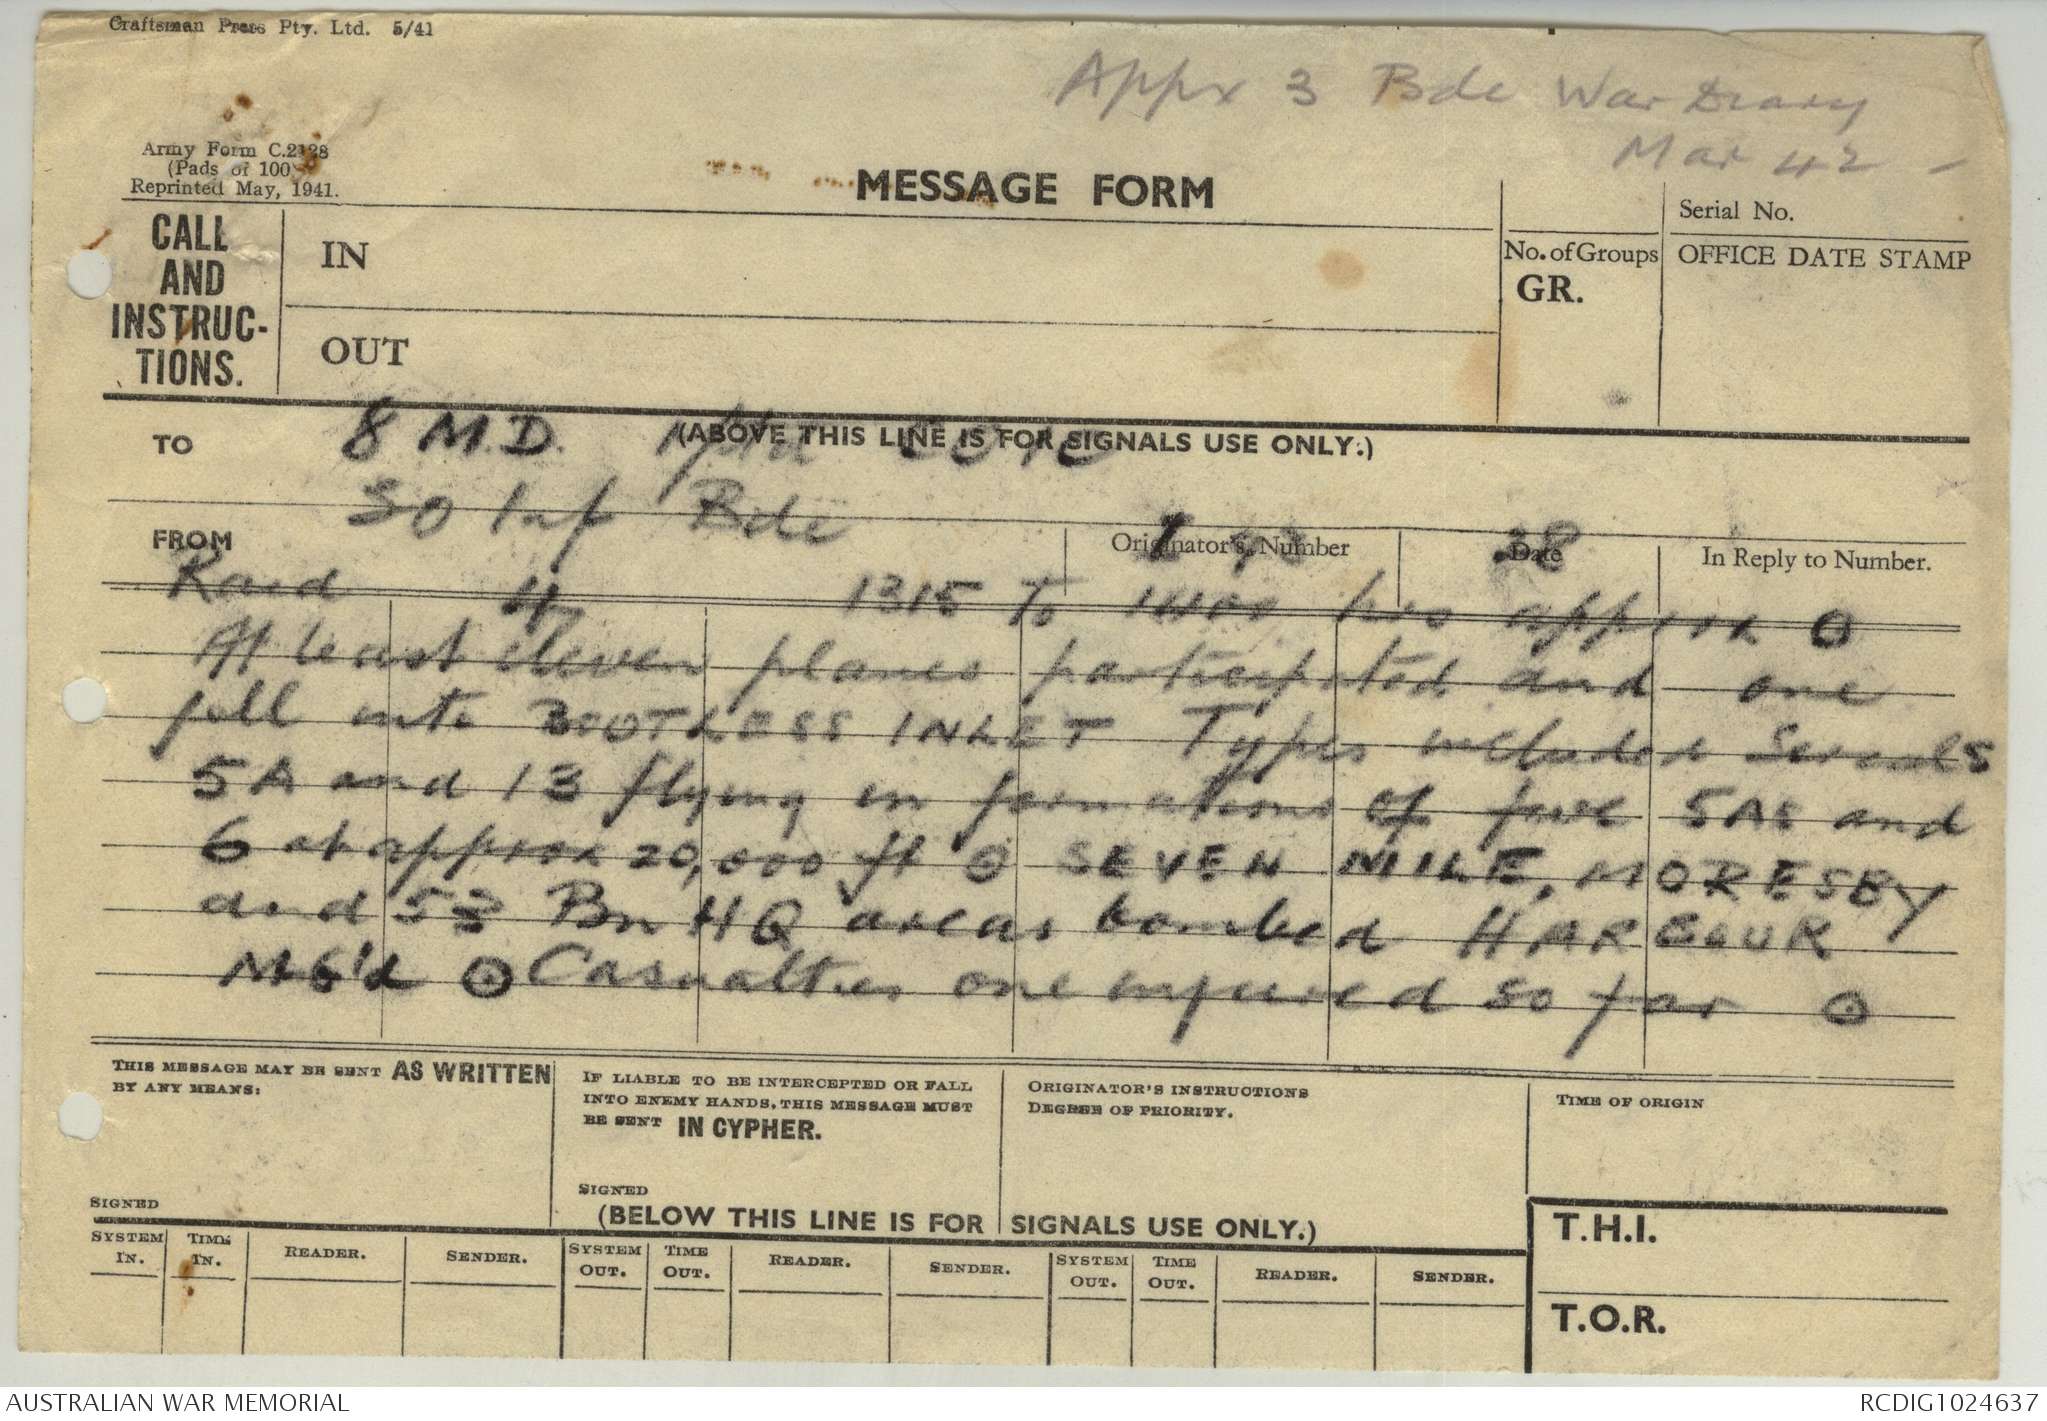 Craftsman Press Pty. Ltd. 5/41
Appx 3 Bde War Diary
Mar 42 -
Army Form C.2128
(Pads of 100)
Reprinted May, 1941.
MESSAGE FORM
CALL
AND
INSTRUC-
TIONS.
IN
OUT
No. of Groups
GR.
Serial No.
OFFICE DATE STAMP
(ABOVE THIS LINE IS FOR SIGNALS USE ONLY.)
TO
8 M.D.
FROM
30 Inf Bde
Originator's Number
Date
28
In Reply to Number.
Raid 1315 to 1400 hrs approx ⊙
At least eleven planes participated and one
fell into BOOTLESS INLET Types included Serials
5A and 13 flying in formations of five 5As and
6 at approx 20,000 ft ⊙ SEVEN MILE, MORESBY
and 53 Bn HQ areas bombed HARBOUR
MG'd ⊙ Casualties one injured so far ⊙
THIS MESSAGE MAY BE SENT AS WRITTEN
BY ANY MEANS:
SIGNED
IF LIABLE TO BE INTERCEPTED OR FALL
INTO ENEMY HANDS, THIS MESSAGE MUST
BE SENT IN CYPHER.
SIGNED
ORIGINATOR'S INSTRUCTIONS
DEGREE OF PRIORITY.
TIME OF ORIGIN
(BELOW THIS LINE IS FOR SIGNALS USE ONLY.)
SYSTEM IN. TIME IN. READER. SENDER. SYSTEM OUT. TIME OUT. READER. SENDER. SYSTEM OUT. TIME OUT. READER. SENDER.
T.H.I.
T.O.R.
AUSTRALIAN WAR MEMORIAL
RCDIG1024637